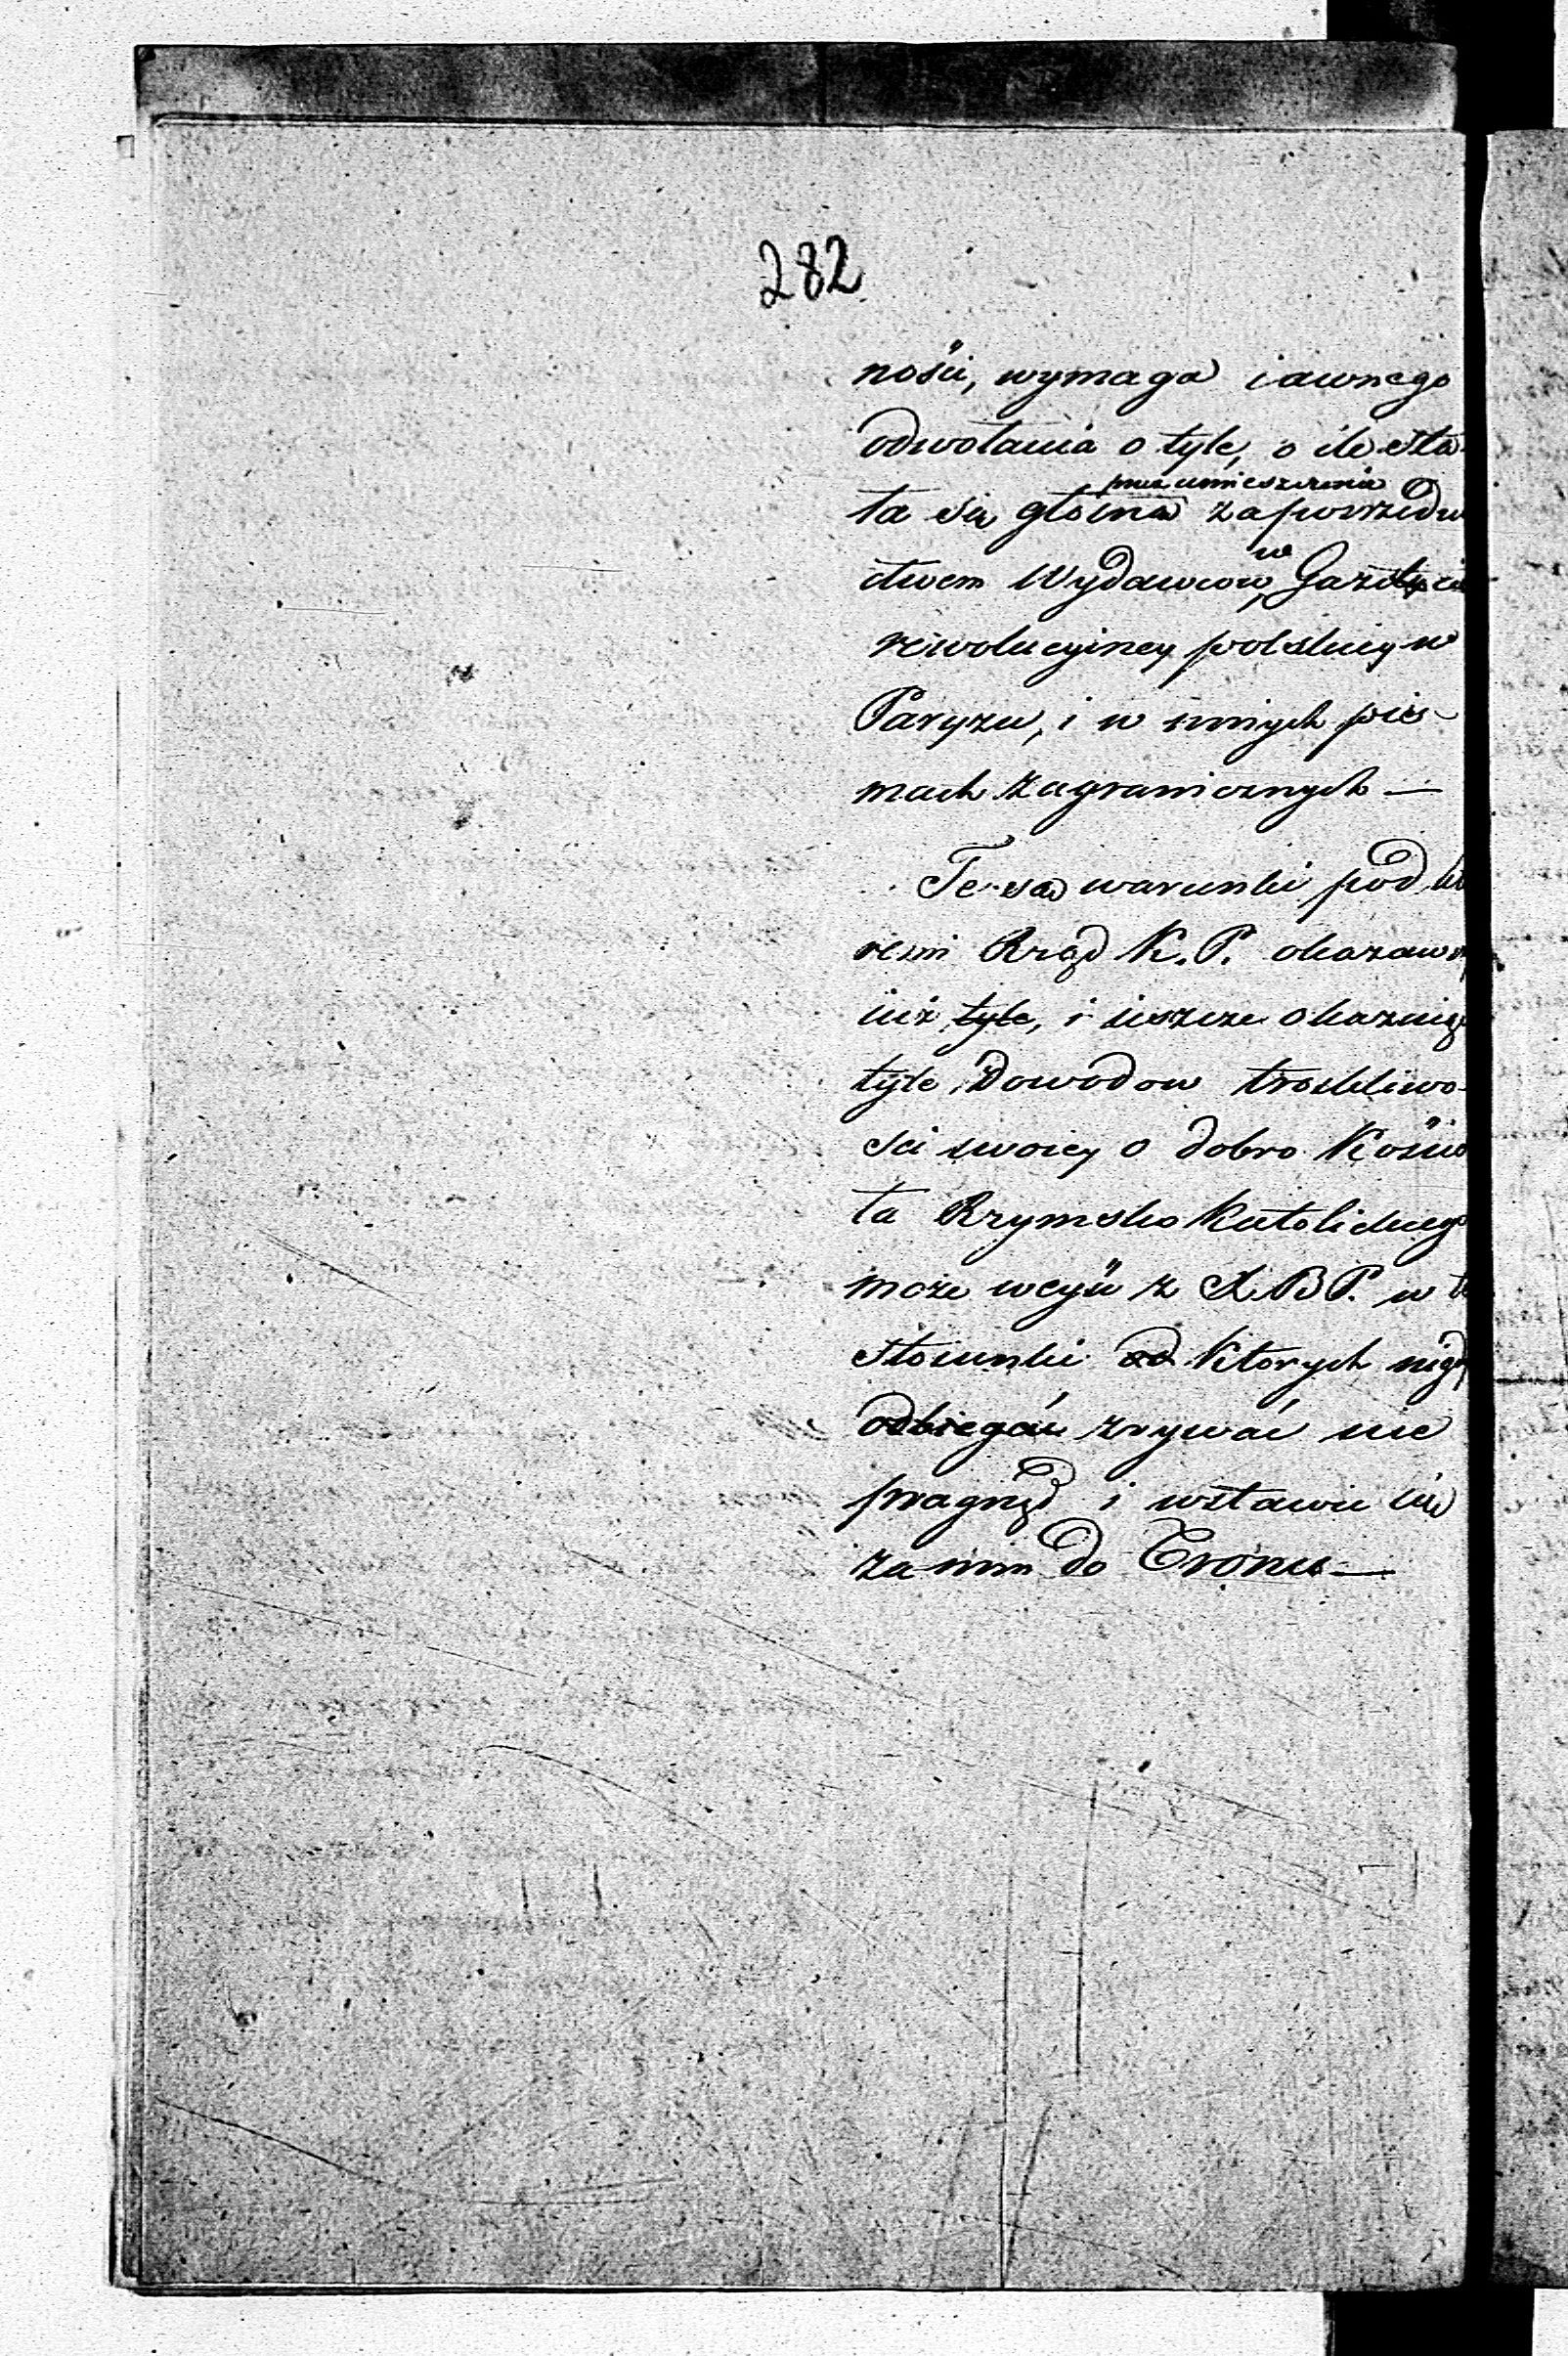 282
ności, wymaga iawnego
odwołania o tyle, o ile sta-
przez umieszczenia
ła się głośna za pośrzedni
w
ctwem Wydawcow, Gazecie
rewolucyiney polskiey w
Paryzu, i w innych pis-
mach zagranicznych —
Te są warunki pod któ
remi Rząd K. P. okazaw
iuż tyle, i ieszcze okazuią
tyle Dowodow troskliwo-
ści swoiey o dobro Kościo
ła Rzymsko Katolickiego
może weyść z X. B P. w te
stosunki od których nigdy
odbiegać zrywać nie
pragnął i wstawić się
za nim do Tronu —